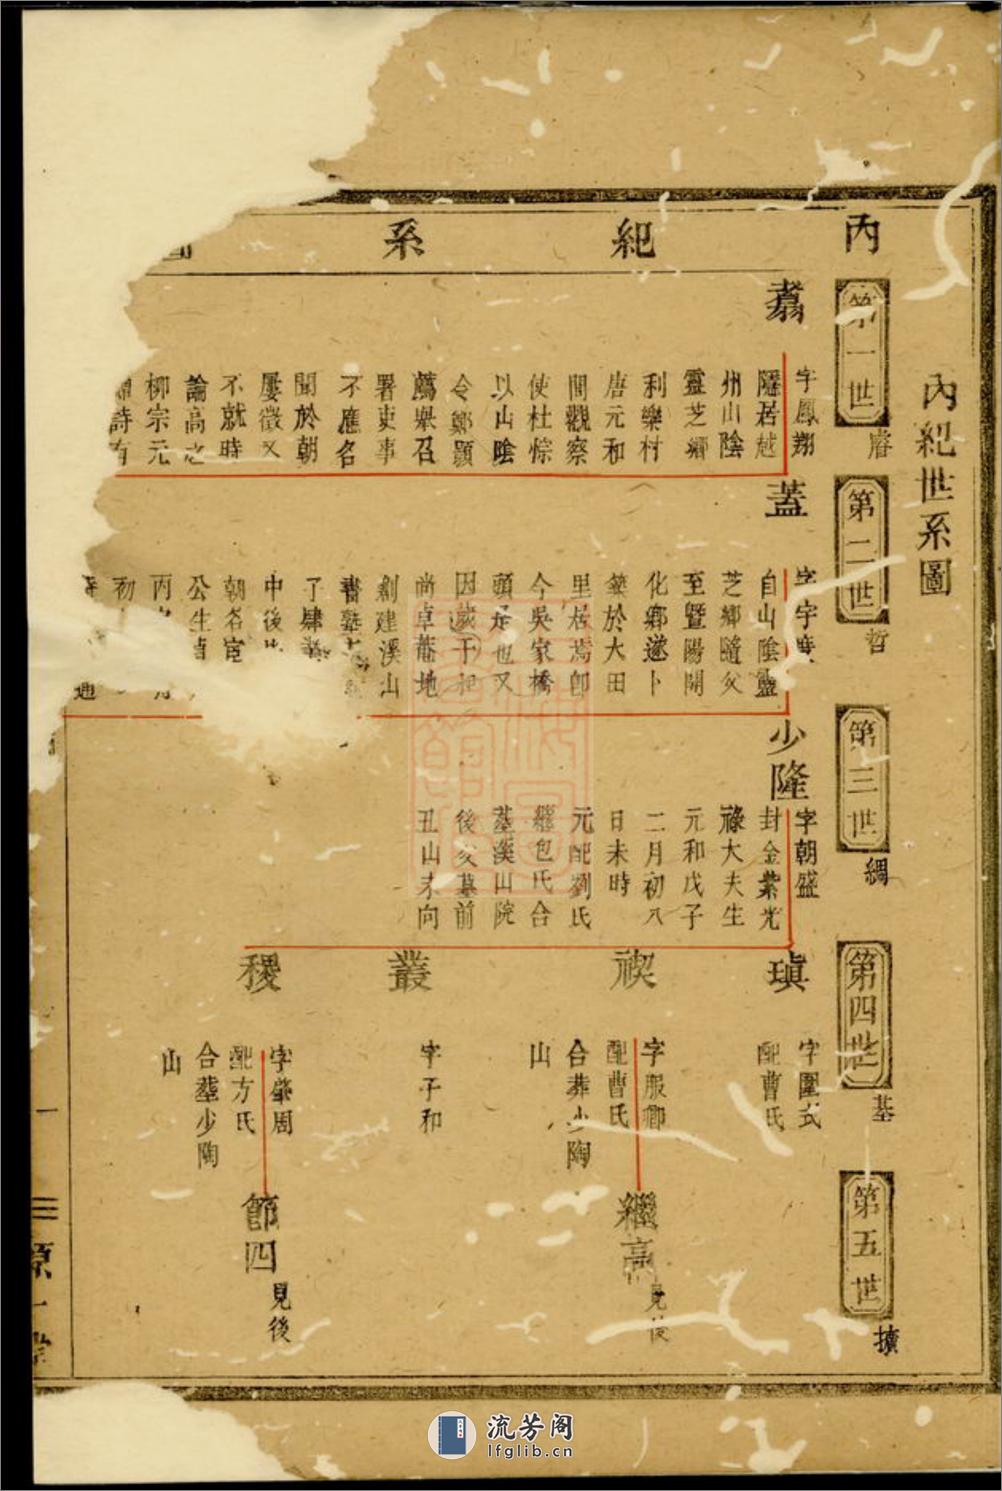 內紀世系圖
內紀系
第一世
睿
第二世
哲
第三世
綢
第四世
基
第五世
擴
翥
字鳳翔
隱居越
州山陰
靈芝鄉
利樂村
唐元和
間觀察
使杜悰
以山陰
令鄭顥
薦舉召
署吏事
不應名
聞於朝
屢徵又
不就時
論高之
柳宗元
詩有
蓋
字宇
自山陰靈
芝鄉隨父
至暨陽開
化鄉遂卜
築於大田
里居焉卽
今吳家橋
頭是也又
因歲干
尚卓菴地
創建溪山
書塾
了肆
中後
朝名宦
公生
丙
初
少隆
字朝盛
封金紫光
祿大夫生
元和戊子
二月初八
日未時
元配劉氏
繼包氏合
墓溪山院
後父墓前
丑山未向
瑱
字圍式
配曹氏
禊
字服卿
配曹氏
合葬少陶
山
叢
字子和
稷
字肇周
配方氏
合葬少陶
山
繼高
見後
節四
見後
一
原一堂
流芳阁
lfglib.cn